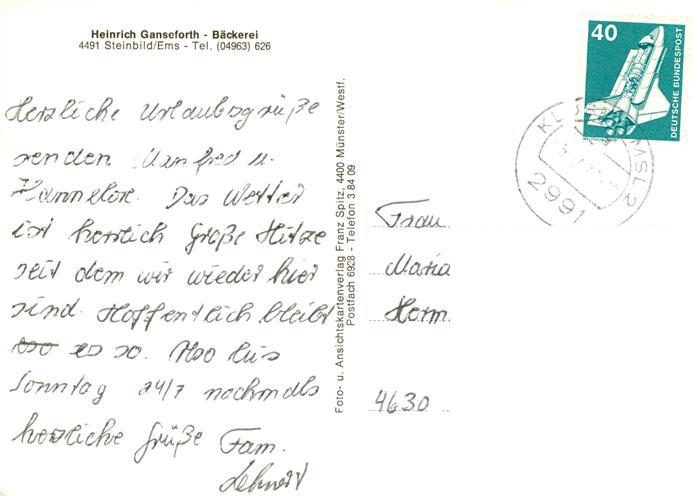 Heinrich Ganseforth - Bäckerei
4491 Steinbild/Ems - Tel. (04963) 626
Herzliche Urlaubsgrüße
senden Manfred u.
Hannelore. Das Wetter
ist herrlich Große Hitze
seit dem wir wieder hier
sind. Hoffentlich bleibt
es so. Also bis
Sonntag 24/7 nochmals
herzliche Grüße Fam.
Foto- u. Ansichtskartenverlag Franz Spitz, 4400 Münster/Westf.
Postfach 6928 - Telefon 3 84 09
40
DEUTSCHE BUNDESPOST
2991
Frau
Maria
Herm.
4630